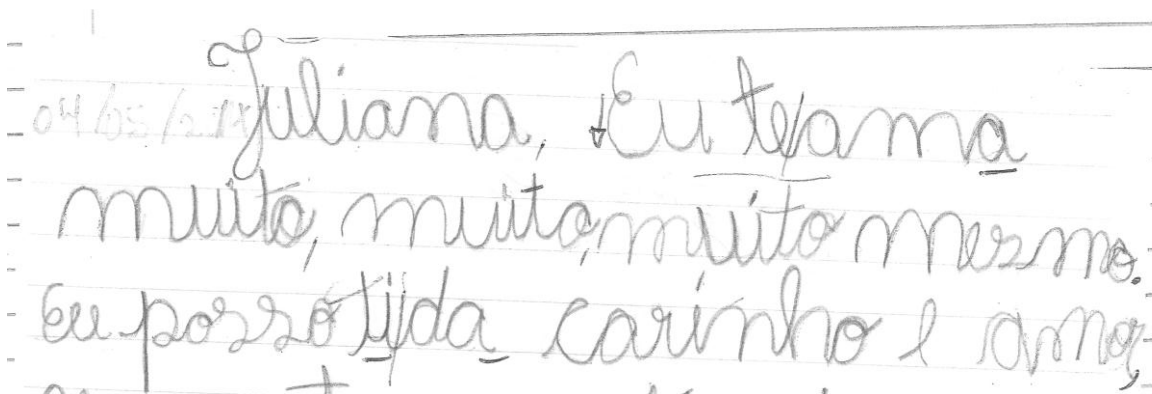 Juliana, Eu te/ama
muito, muito, muito mesmo.
Eu posso ti/da carinho e amo,